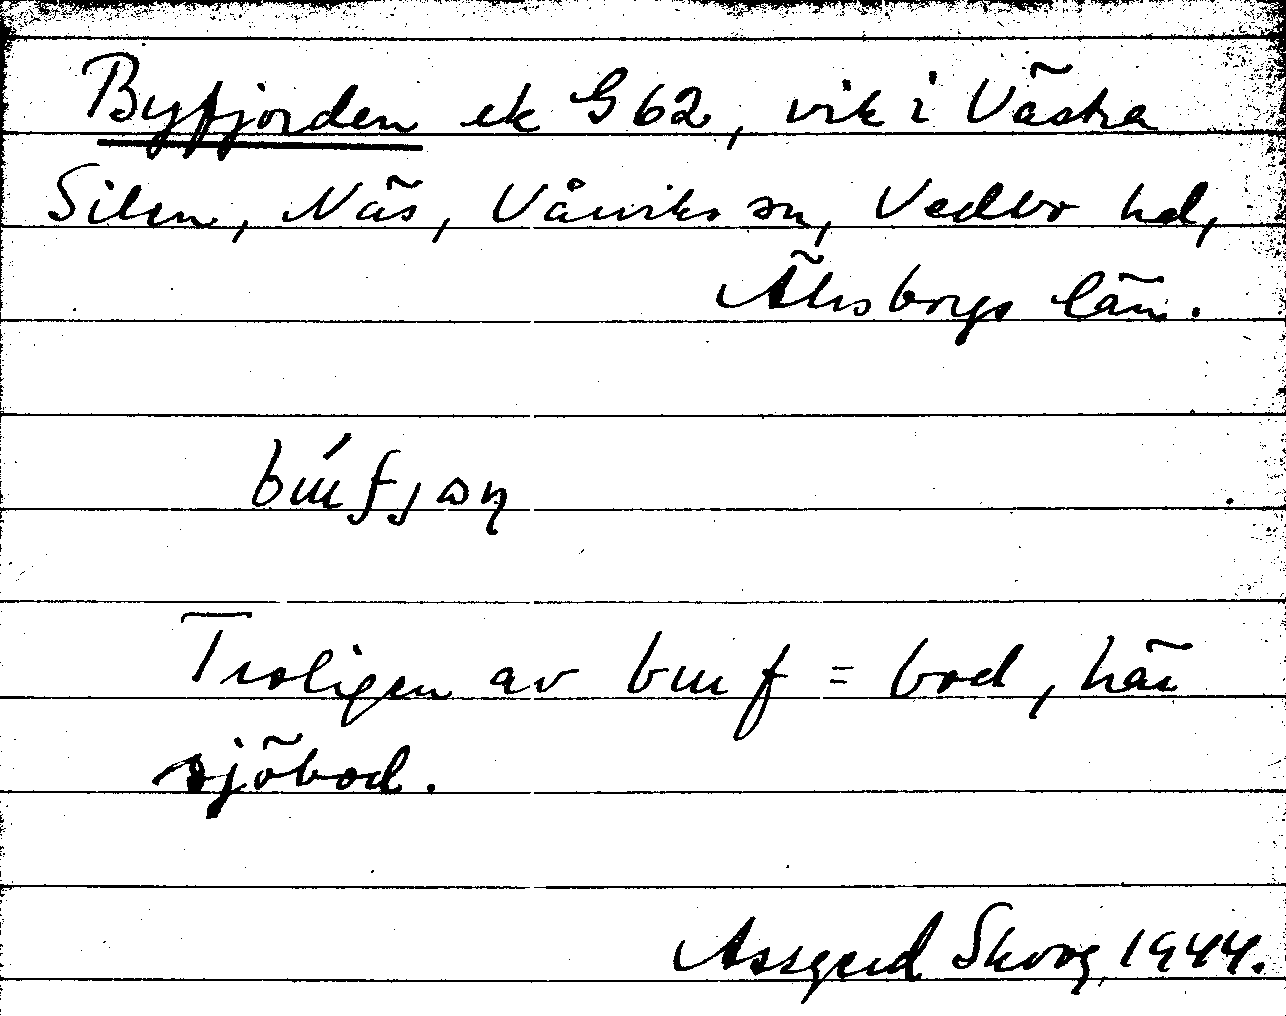 Byfjorden ek G 62, vik i Västra
Silen, Näs, Vårviks sn, Vedbo hd,
Älvsborgs län.
búfjan
Troligen av bu f = bod, här
sjöbod.
Assgerd Skoog 1944.